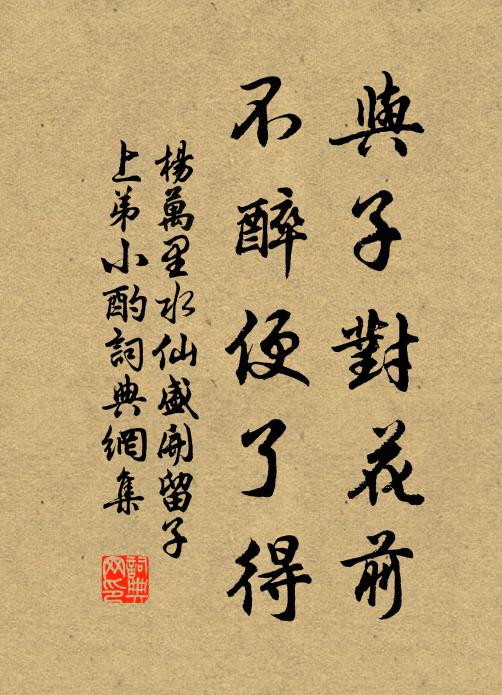 與子對花前
不醉便了得
楊萬里水仙盛開留子
上弟小酌詞典網集
詞典網印